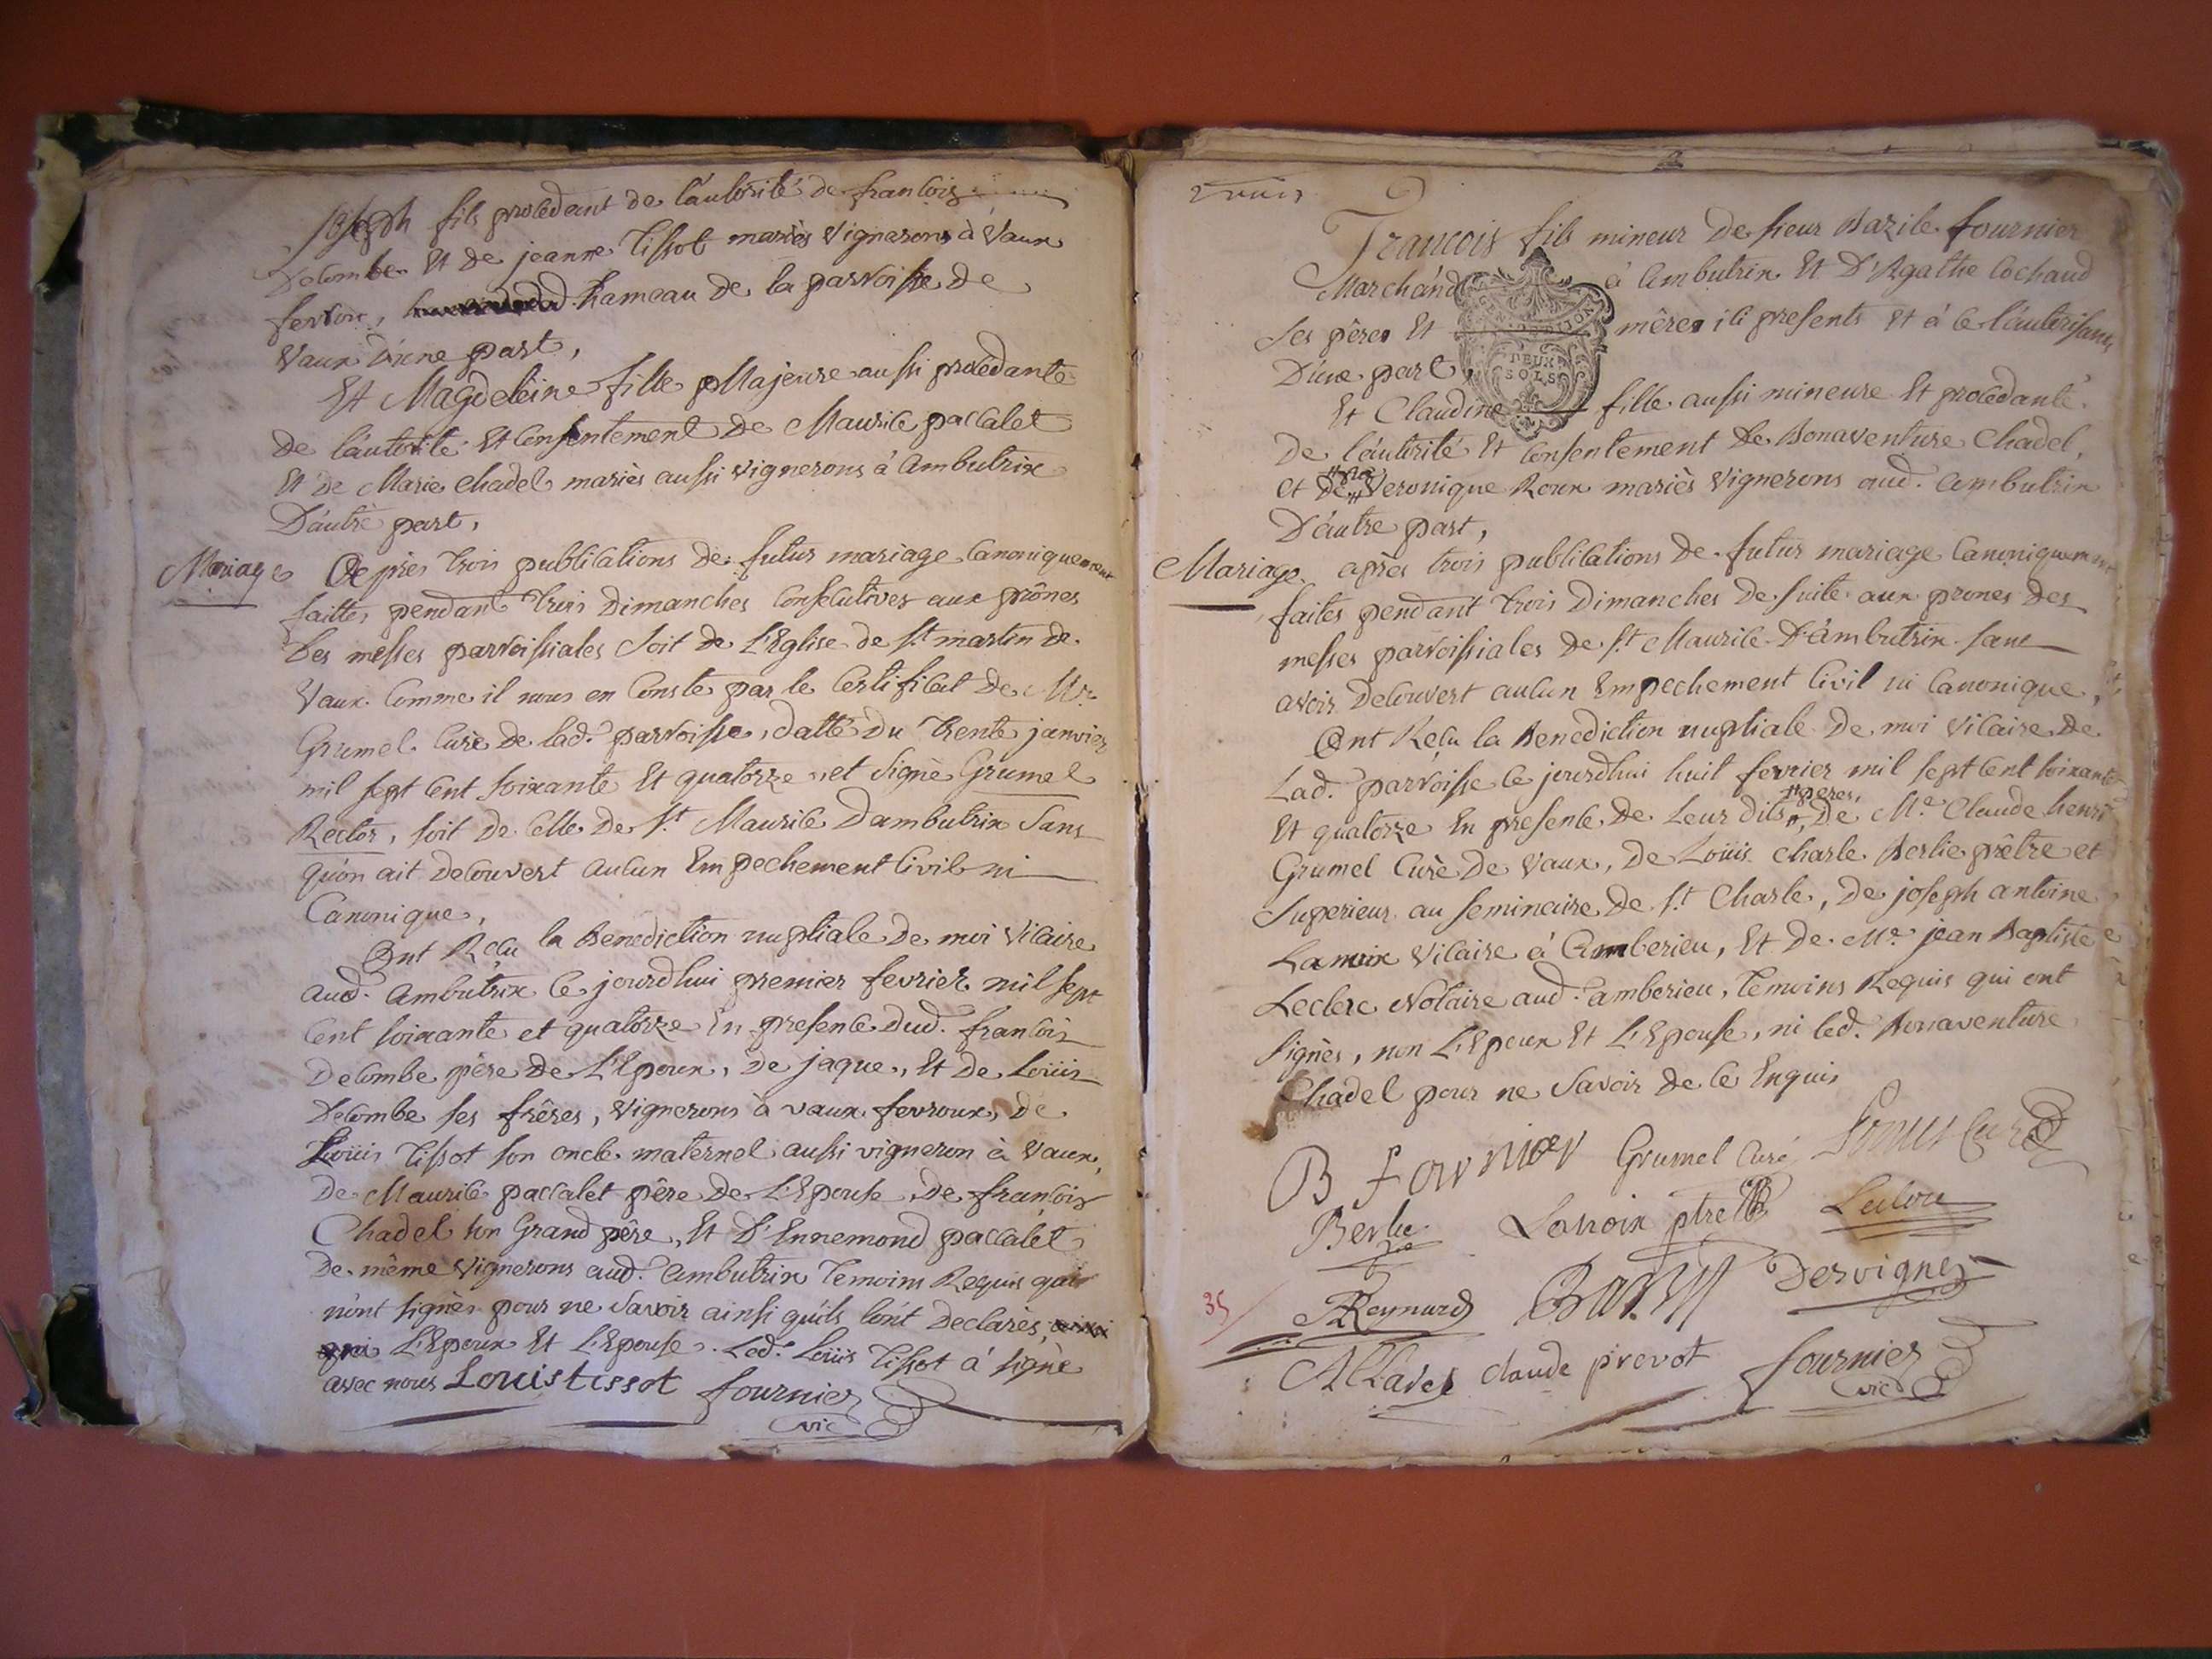 Joseph fils procedant de l'autorité de francois
Decombe et de jeanne Tissot mariès Vignerons à Vaux
fevroux, hameau de la parroisse de
Vaux d'une part,
Et Magdeleine fille Majeure aussi procedante
de l'autorité et Consentement de Maurice paccalet
et de Marie Chadel mariès aussi vignerons à Ambutrix
D'autre part,
Mariage Apres trois publications de futur mariage Canoniquement
faites pendant trois Dimanches Consecutives aux prônes
des messes parroissiales soit de l'Eglise de st martin de
Vaux Comme il nous en Conste par le Certificat de Mr.
Grumel Curé de lad. parroisse, datté du trente janvier
mil sept cent soixante et quatorze, et signé Grumel
Rector, soit de celle de st Maurice Dambutrix sans
qu'on ait decouvert aucun Empechement Civil ni
Canonique,
Ont Reçu la Benediction nuptiale de moi Vicaire
aud. Ambutrix ce jourdhui premier fevrier mil sept
cent soixante et quatorze En presence dud. francois
Decombe père de l'Epoux, de jaque, et de Loüis
Decombe ses frères, Vignerons à vaux fevroux, de
Loüis Tissot son oncle maternel aussi vigneron à Vaux,
de Maurice paccalet père de l'Epouse, de françois
Chadel son Grand père, et d'Ennemond paccalet
de même Vignerons aud. Ambutrix temoins Requis qui
n'ont signès pour ne savoir ainsi qu'ils l'ont declarès,
L'Epoux et l'Epouse. Led. Loüis Tissot à signè
avec nous Louis tissot fournier
vic
François fils mineur de sieur Bazile fournier
Marchand à Ambutrix et D'Agathe Cochaud
ses père et mère ici presents et à ce l'autorisants
D'une part,
DEUX
SOLS
Et Claudine fille aussi mineure et procedante
de l'autorité et Consentement de Bonaventure Chadel,
et de Veronique Roux mariès Vignerons aud. Ambutrix
D'autre part,
Mariage après trois publications de futur mariage Canoniquement
faites pendant trois Dimanches de suite aux prones des
messes parroissiales de st Maurice D'ambutrix sans
avoir decouvert aucun Empechement Civil ni Canonique,
Ont Reçu la Benediction nuptiale de moi Vicaire de
Lad. parroisse ce jourdhui huit fevrier mil sept cent soixante
et quatorze En presence de Leur dits pères, de Me Claude henri
Grumel Curè de Vaux, de Loüis Charle Berlie prêtre et
Superieur au seminaire de st Charle, de joseph antoine
Lanoix Vicaire à Amberieu, et de Me jean Baptiste
Leclerc Notaire aud. amberieu, temoins Requis qui ont
signès, non L'Epoux et L'Epouse, ni led. Bonaventure
Chadel pour ne savoir de ce Enquis
B fournier Grumel Curé
Berlie Lanoix ptre
Reynard Dervignes
35
claude prevot fournier
vic